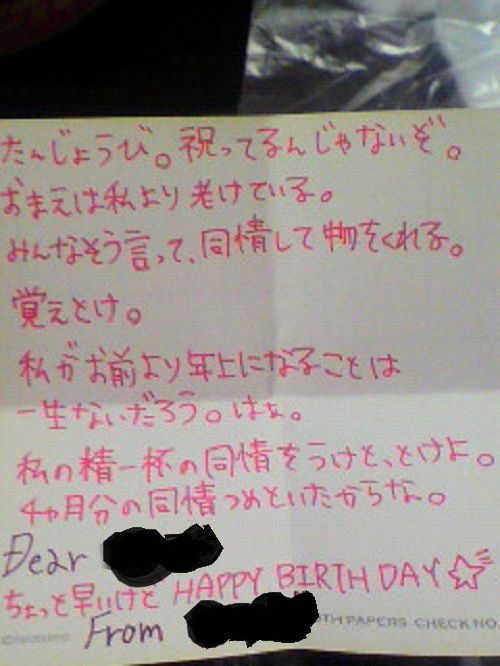 たんじょうび。祝ってるんじゃないぞ。
おまえは私より老けている。
みんなそう言って、同情して物をくれる。
覚えとけ。
私がお前より年上になることは
一生ないだろう。はぁ。
私の精一杯の同情をうけと、とけよ。
4ヶ月分の同情つめといたからな。
Dear
ちょっと早いけど HAPPY BIRTHDAY☆
From
THPAPERS CHECK NO.